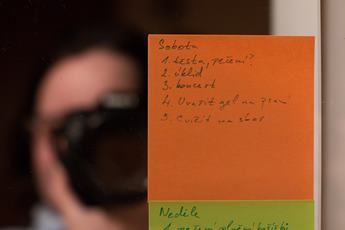 Sobota
1. testa, pečení?
2. úklid
3. koncert
4. Uvařit gel na praní
5. Cvičit na sbor
Neděle